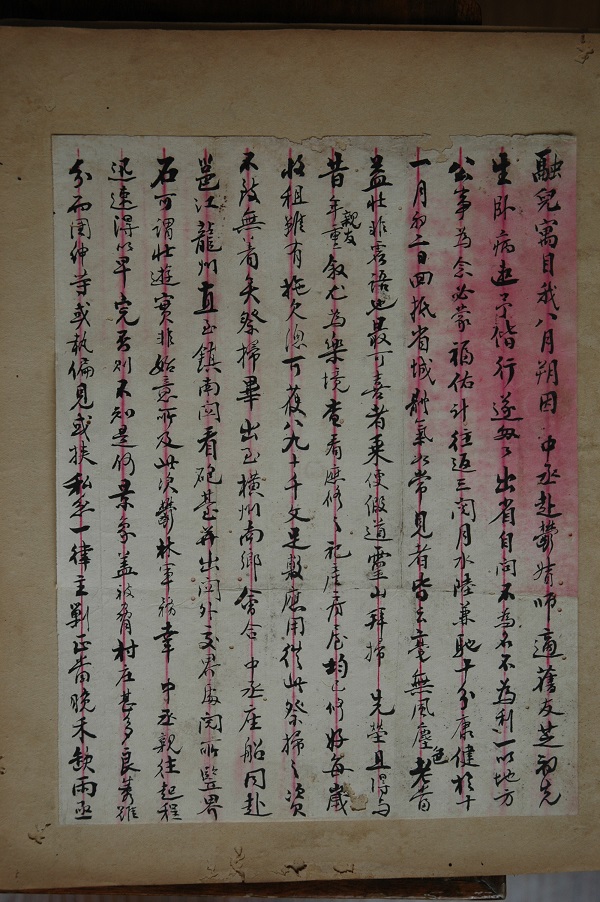 融兒寓目我八月朔因 中丞赴鬱督師適舊友芝初先
生臥病遽予偕行遂匆匆出省自問不為名不為利一以地方
公事為念必蒙福佑計往返三閱月水陸兼馳十分康健於十
一月初二日回抵省城體氣如常見者皆云毫無風塵色老者
益壯非客語也最可喜者乘便假道靈山拜掃 先塋且得與
昔年親友重敘尤為樂境查看應修之祀產房屋均已修好每歲
收租雖有拖欠總可獲八九十千文足敷應用從此祭掃之資
不致無着矣祭掃畢出至橫州南鄉會合 中丞座船同赴
邕江龍州直至鎮南關看砲臺并出關外交界處閱所豎界
石可謂壯遊實非始意所及此次鬱林軍務幸 中丞親往起程
迅速得以早完否則不知是何景象蓋被脅村庄甚多良莠雖
分而團紳等或執偏見或挾私忿一律主剿正當晚禾缺雨亟